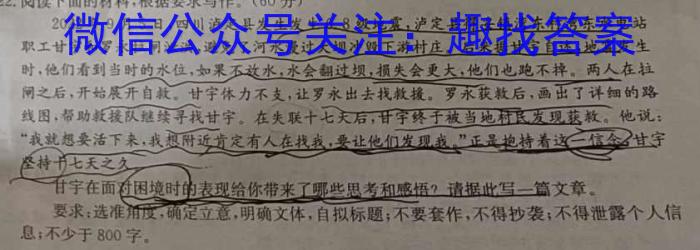 22. 阅读下面的材料,根据要求写作。(60分)
微信公众号关注:趣找答案
职工甘宇
时,他们看到当时的水位,如果不放水,水会翻过坝,损失会更大,他们也跑不掉。两人在拉
闸之后,开始展开自救。甘宇体力不支,让罗永出去找救援。罗永获救后,画出了详细的路
线图,帮助救援队继续寻找甘宇。在失联十七天后,甘宇终于被当地村民发现获救。他说:
“我就想要活下来,我想附近肯定有人在找我,要让他们发现我。”正是抱持着这一信念,甘宇
坚持十七天之久。
甘宇在面对困境时的表现给你带来了哪些思考和感悟?请据此写一篇文章。
要求:选准角度,确定立意,明确文体,自拟标题;不要套作,不得抄袭;不得泄露个人信
息;不少于800字。